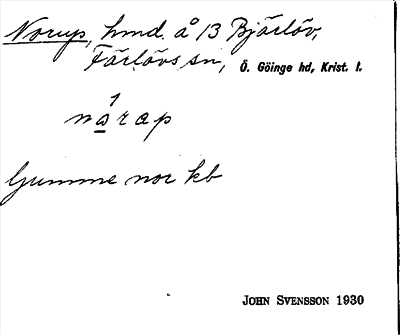 Norup, hmd. å 13 Bjärlöv,
Färlövs sn, Ö. Göinge hd, Krist. l.
nå1rap
ljumme nor kb
JOHN SVENSSON 1930